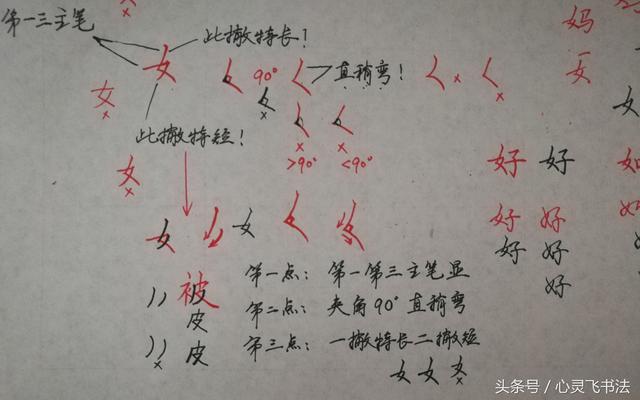 第一三主笔
此撇特长!
妈
女
女
90°
直稍弯!
女
女
此撇特短!
>90° <90°
好 好
如
女
女 女
好 好
好 好
好
被
皮
皮
第一点: 第一第三主笔显
第二点: 夹角90°直稍弯
第三点: 一撇特长二撇短
女 女 女
头条号/心灵飞书法